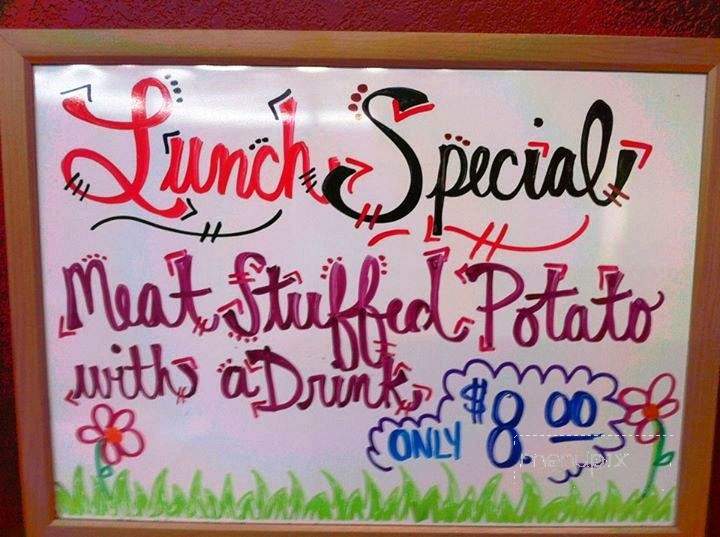 Lunch Special
Meat Stuffed Potato
with a Drink
ONLY $8 00
menupix